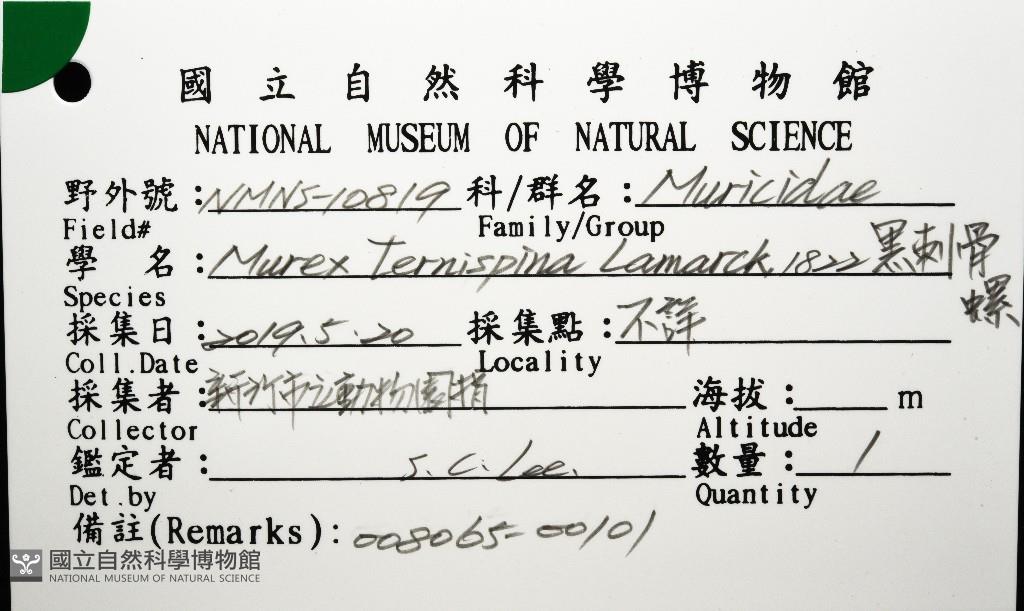 國立自然科學博物館
NATIONAL MUSEUM OF NATURAL SCIENCE
野外號：NMNS-10819 科/群名：Muricidae
Field# Family/Group
學 名：Murex Ternispina Lamarck, 1822 黑刺骨螺
Species
採集日：2019.5.20 採集點：不詳
Coll.Date Locality
採集者：新竹市立動物園捐 海拔：m
Collector Altitude
鑑定者：S. C. Lee. 數量：1
Det.by Quantity
備註(Remarks)：008065-00101
國立自然科學博物館
NATIONAL MUSEUM OF NATURAL SCIENCE